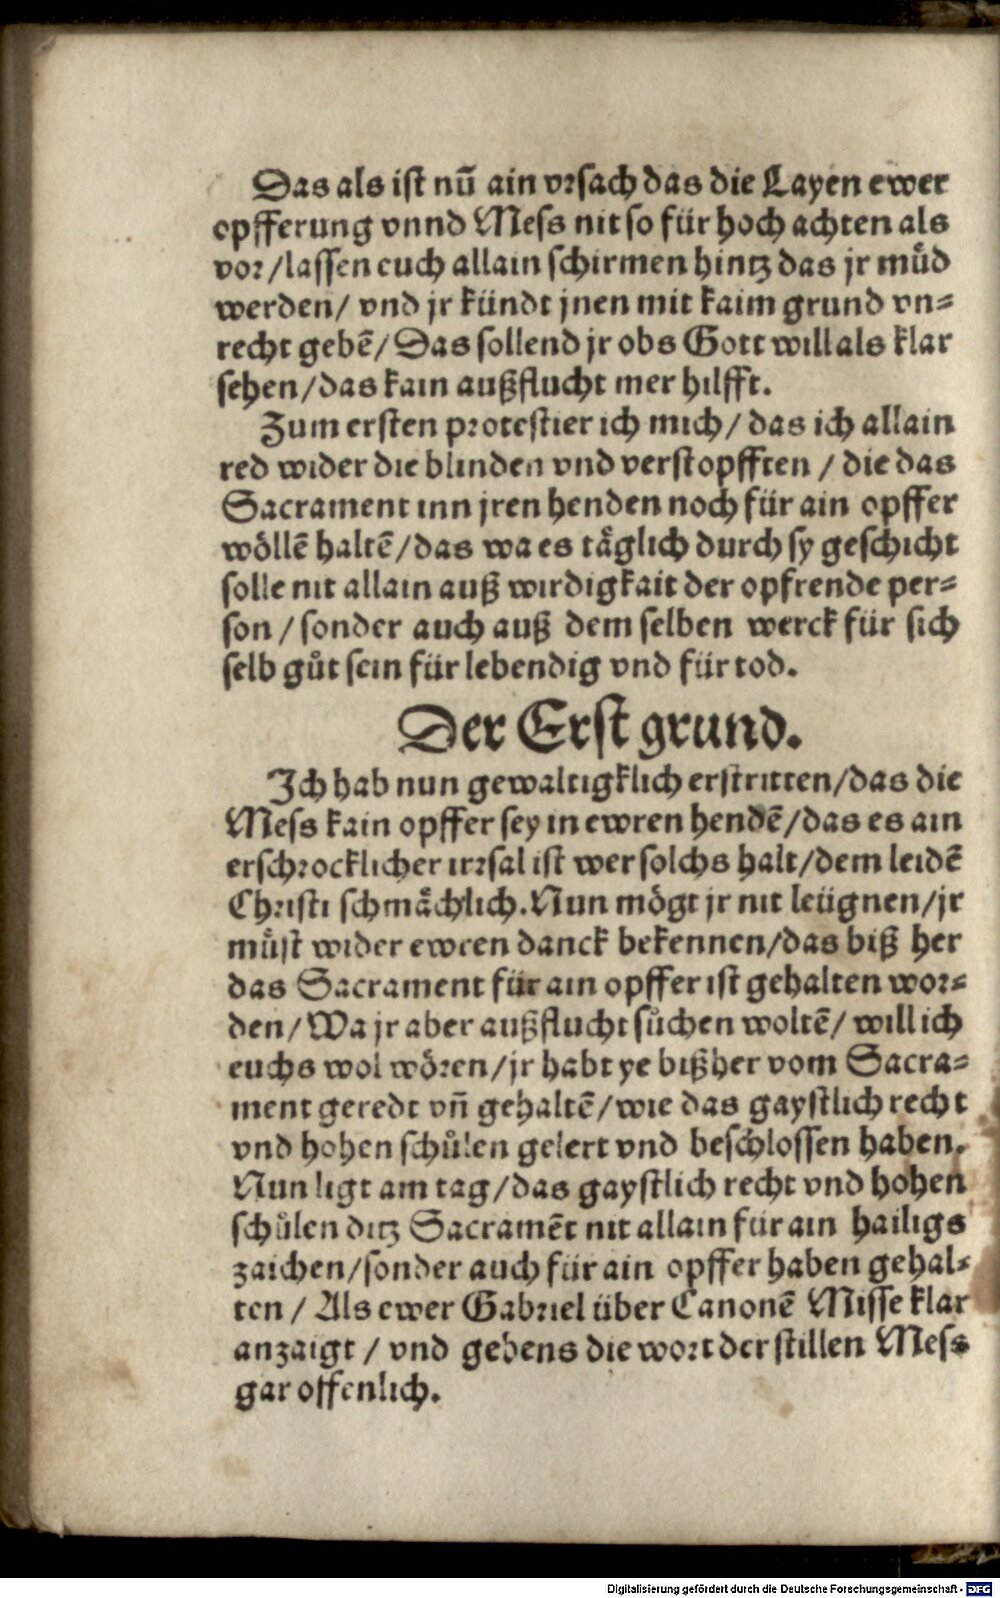 Das als ist nū ain vrsach das die Layen ewer
opfferung vnnd Mess nit so für hoch achten als
vor/lassen euch allain schirmen hintz das jr muͤd
werden/ vnd jr kündt jnen mit kaim grund vn=
recht gebē/Das sollend jr obs Gott will als klar
sehen/das kain außflucht mer hilfft.
Zum ersten protestier ich mich/ das ich allain
red wider die blinden vnd verstopfften / die das
Sacrament inn jren henden noch für ain opffer
woͤllē haltē/das wa es taͤglich durch sy geschicht
solle nit allain auß wirdigkait der opfrende per=
son / sonder auch auß dem selben werck für sich
selb guͦt sein für lebendig vnd für tod.
Der Erst grund.
Ich hab nun gewaltigklich erstritten/das die
Mess kain opffer sey in ewren hendē/das es ain
erschrocklicher irrsal ist wer solchs halt/dem leidē
Christi schmaͤchlich. Nun moͤgt jr nit leügnen/jr
muͤst wider ewren danck bekennen/das biß her
das Sacrament für ain opffer ist gehalten wor=
den/ Wa jr aber außflucht suͦchen woltē/ will ich
euchs wol woͤren/jr habt ye bißher vom Sacra=
ment geredt vn̄ gehaltē/wie das gaystlich recht
vnd hohen schuͦlen gelert vnd beschlossen haben.
Nun ligt am tag/das gaystlich recht vnd hohen
schuͦlen ditz Sacramēt nit allain für ain hailigs
zaichen/sonder auch für ain opffer haben gehal=
ten / Als ewer Gabriel über Canonē Misse klar
anzaigt / vnd gebens die wort der stillen Mess
gar offenlich.
Digitalisierung gefördert durch die Deutsche Forschungsgemeinschaft - DFG